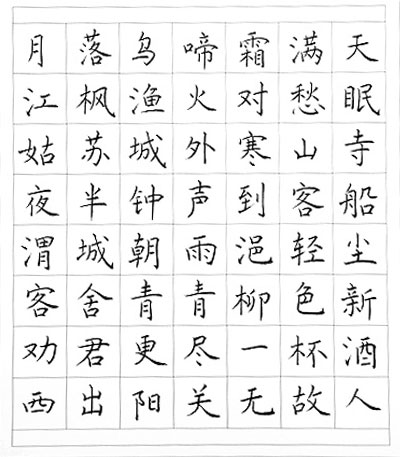 月落乌啼霜满天
江枫渔火对愁眠
姑苏城外寒山寺
夜半钟声到客船
渭城朝雨浥轻尘
客舍青青柳色新
劝君更尽一杯酒
西出阳关无故人